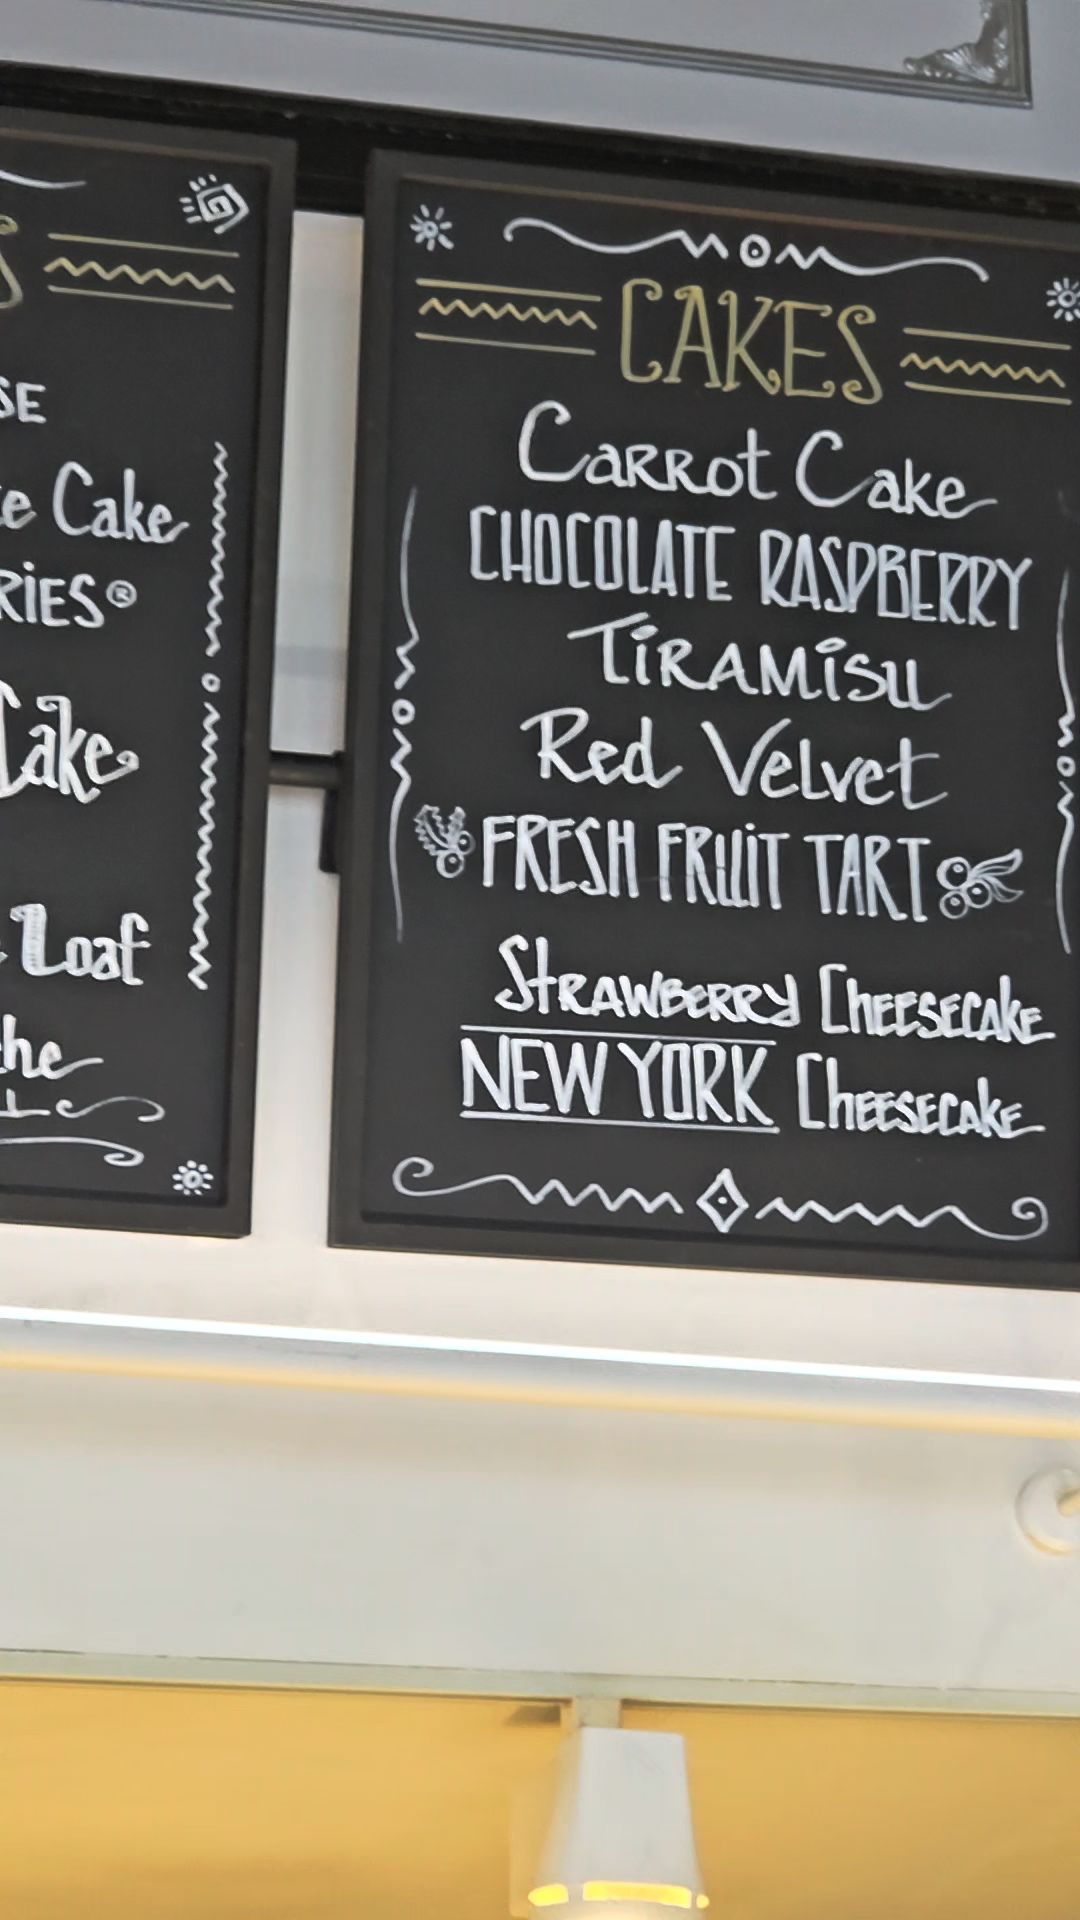 SE
Cake
RIES®
Cake
Loaf
CAKES
Carrot Cake
CHOCOLATE RASPBERRY
TiRAMiSU
Red Velvet
FRESH FRUiT TART
STRAWBERRY CHEESECAKE
NEW YORK CHEESECAKE